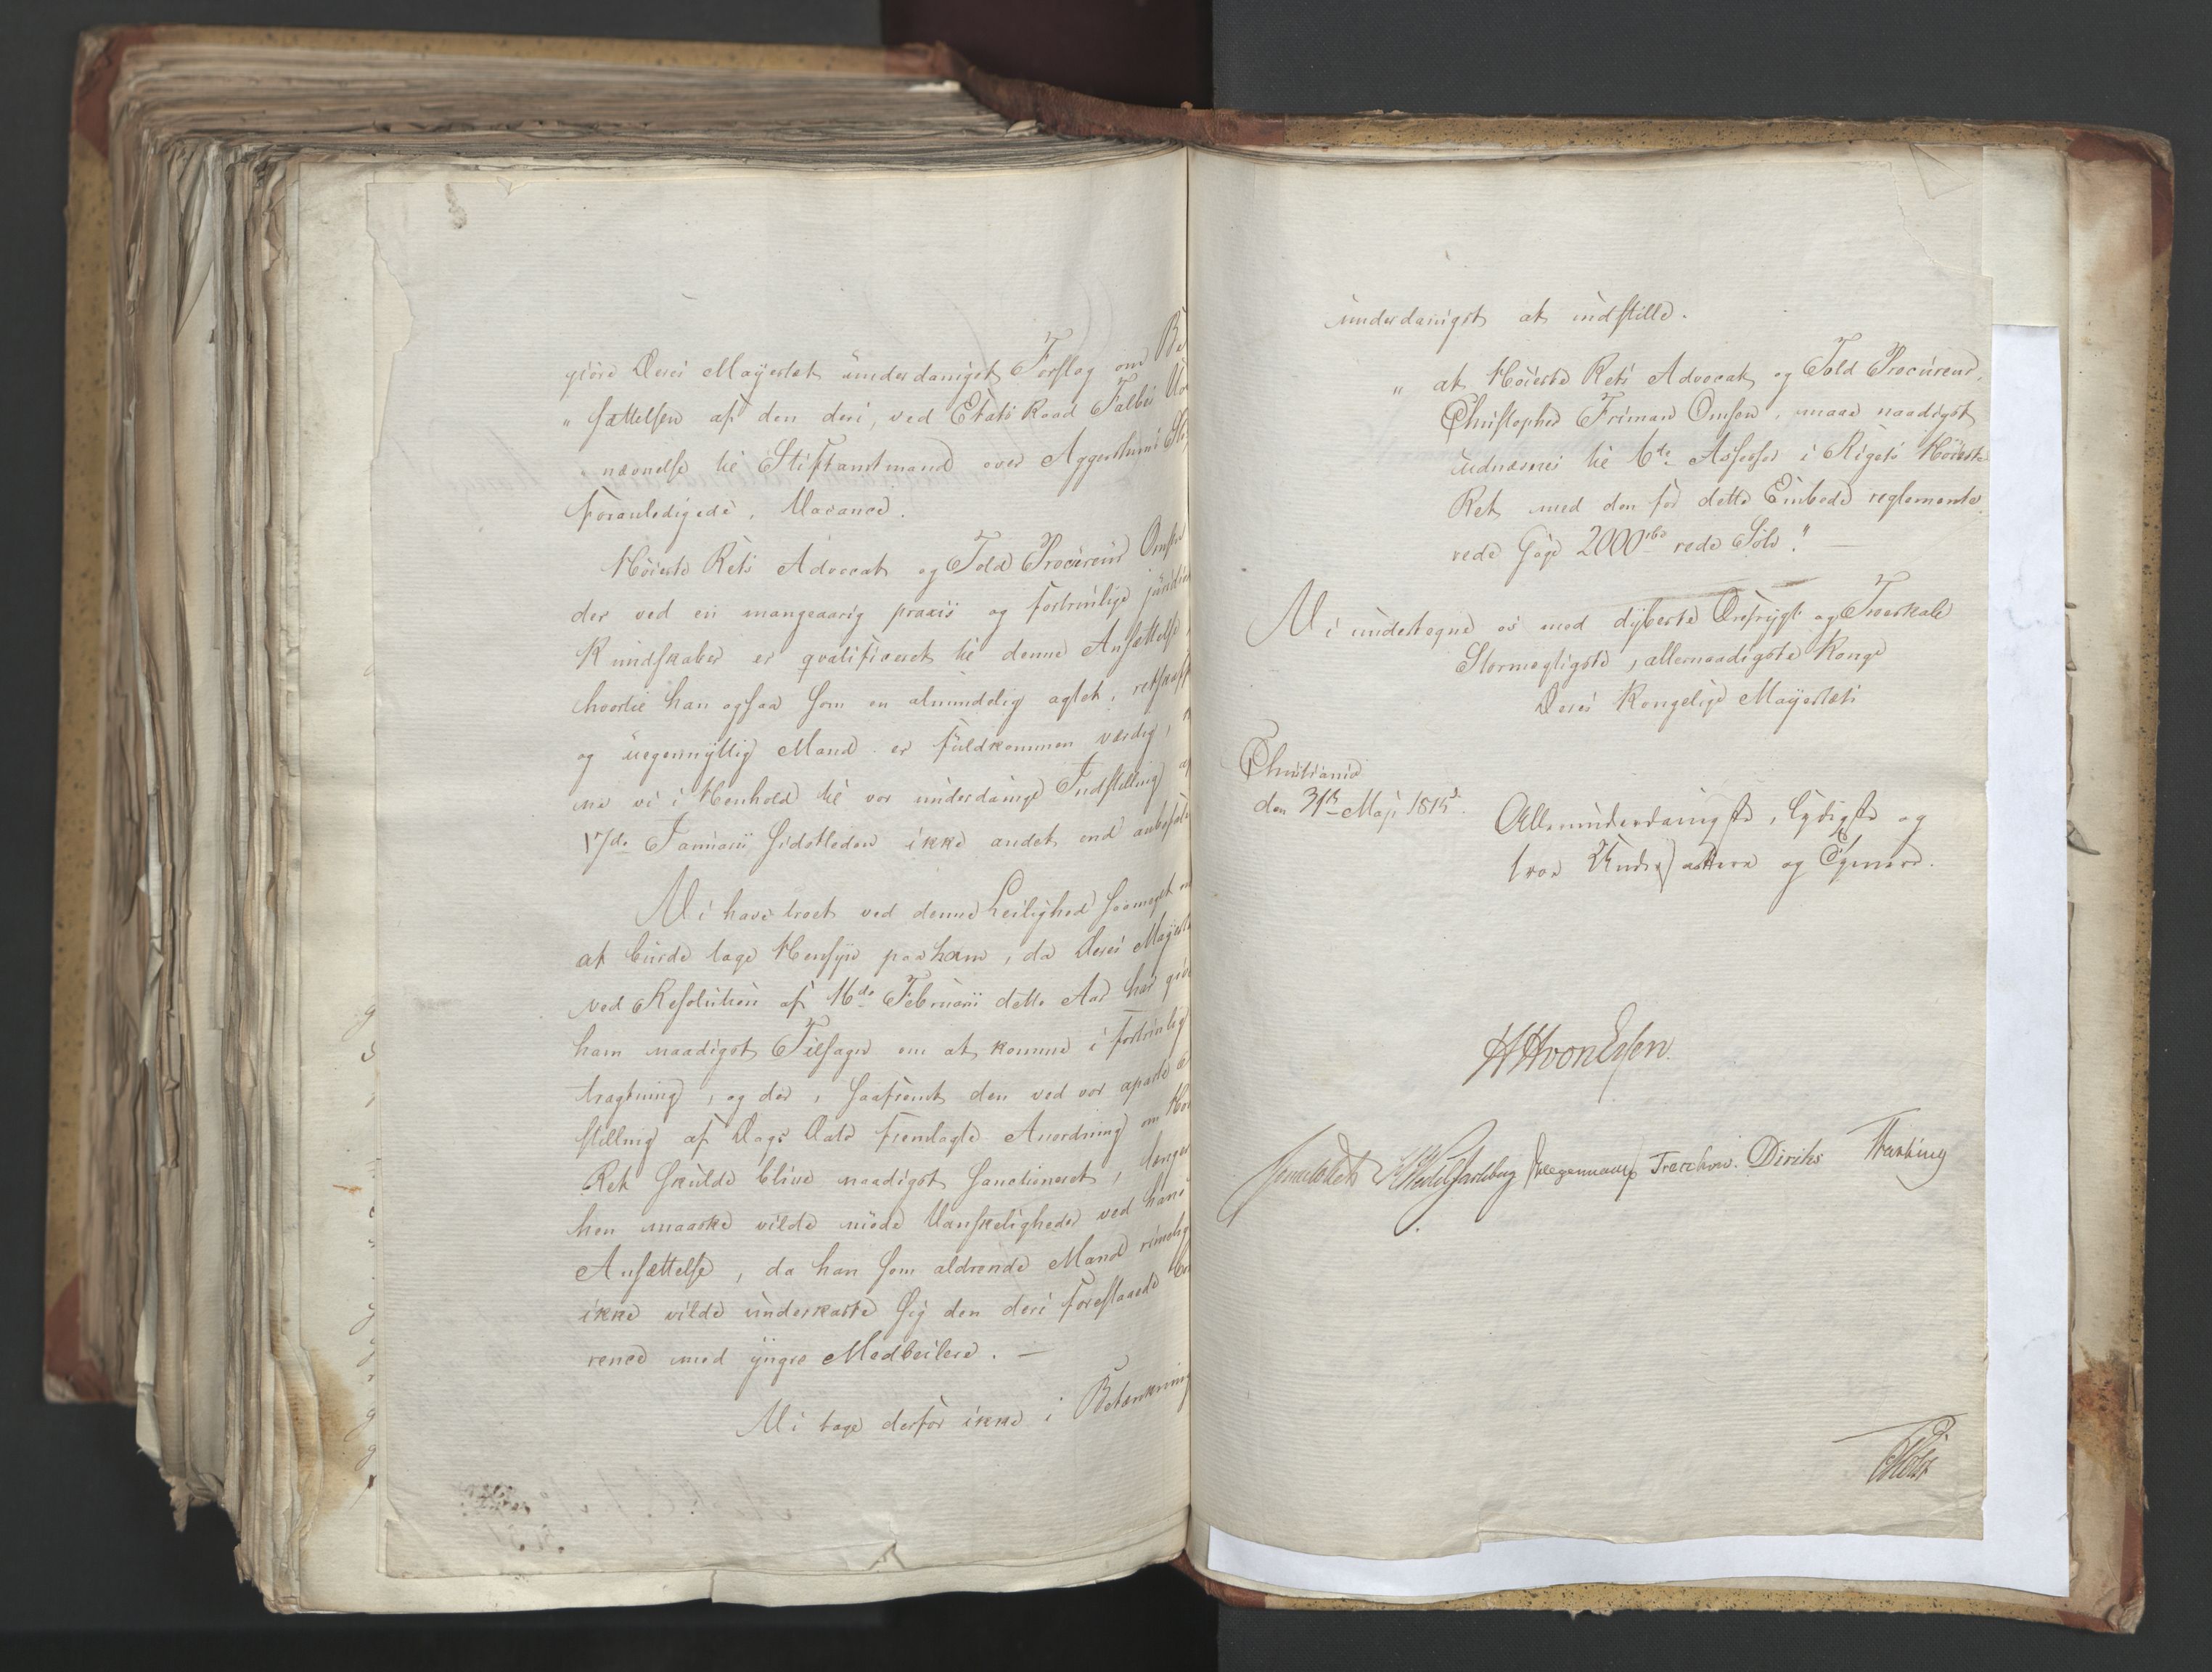 giøre Deres Mayestæt underdanigst Forslag om Be
„ sættelsen af den deri, ved Etats Raad Falbes Ud
nævnelse til Stiftamtmand over Aggershuus
foranledigede, Vacance.
Høieste Rets Advocat og Told Procureur Omsen
der ved en mangeaarig praxis og fortrinlige juridiske
Kundskaber er qvalificeret til denne Ansættelse,
hvortil han ogsaa som en almindelig agtet, retskaff
og uegennyttig Mand er fuldkommen værdig,
ne vi i Henhold til vor underdanige Indstilling af
17de Januarii sidstleden ikke andet end anbefale
Vi have troet ved denne Leilighed saameget
at burde tage Hensyn paa ham, da Deres Mayestæt
ved Resolution af 16de Februarii dette Aar har givet
ham naadigst Tilsagn om at komme i fortrinlig
tragtning, og da, saafremt den ved vor aparte
stilling af Dags Dato fremlagte Anordning om Høi
Ret skulde blive naadigst sanctioneret,
han maaske vilde møde Vanskeligheder ved hans
Ansættelse, da han som aldrende Mand rimelig
ikke vilde underkaste sig den deri foreslaaede
rence med yngre Medbeilere. —
Vi tage derfor ikke i Betænkning
underdanigst at indstille.
„ at Høieste Rets Advocat og Told Procureur,
Christopher Friman Omsen, maae naadigst
udnævnes til 6te Assessor i Rigets Høieste
Ret med den for dette Embede reglemente
rede Gage 2000 rbd rede Sølv." —
Vi undertegne os med dybeste Ærefrygt og Troeskab
Stormægtigste, allernaadigste Konge
Deres Kongelige Mayestæts
Christiania
den 31te Maji 1815.
Allerunderdanigste, lydigste og
troe Undersaatter og Tjenere.
HHvonEssen.
Sommerhielm HWedelJarlsberg Hegermann Treschow. Diriks Fasting
Holst